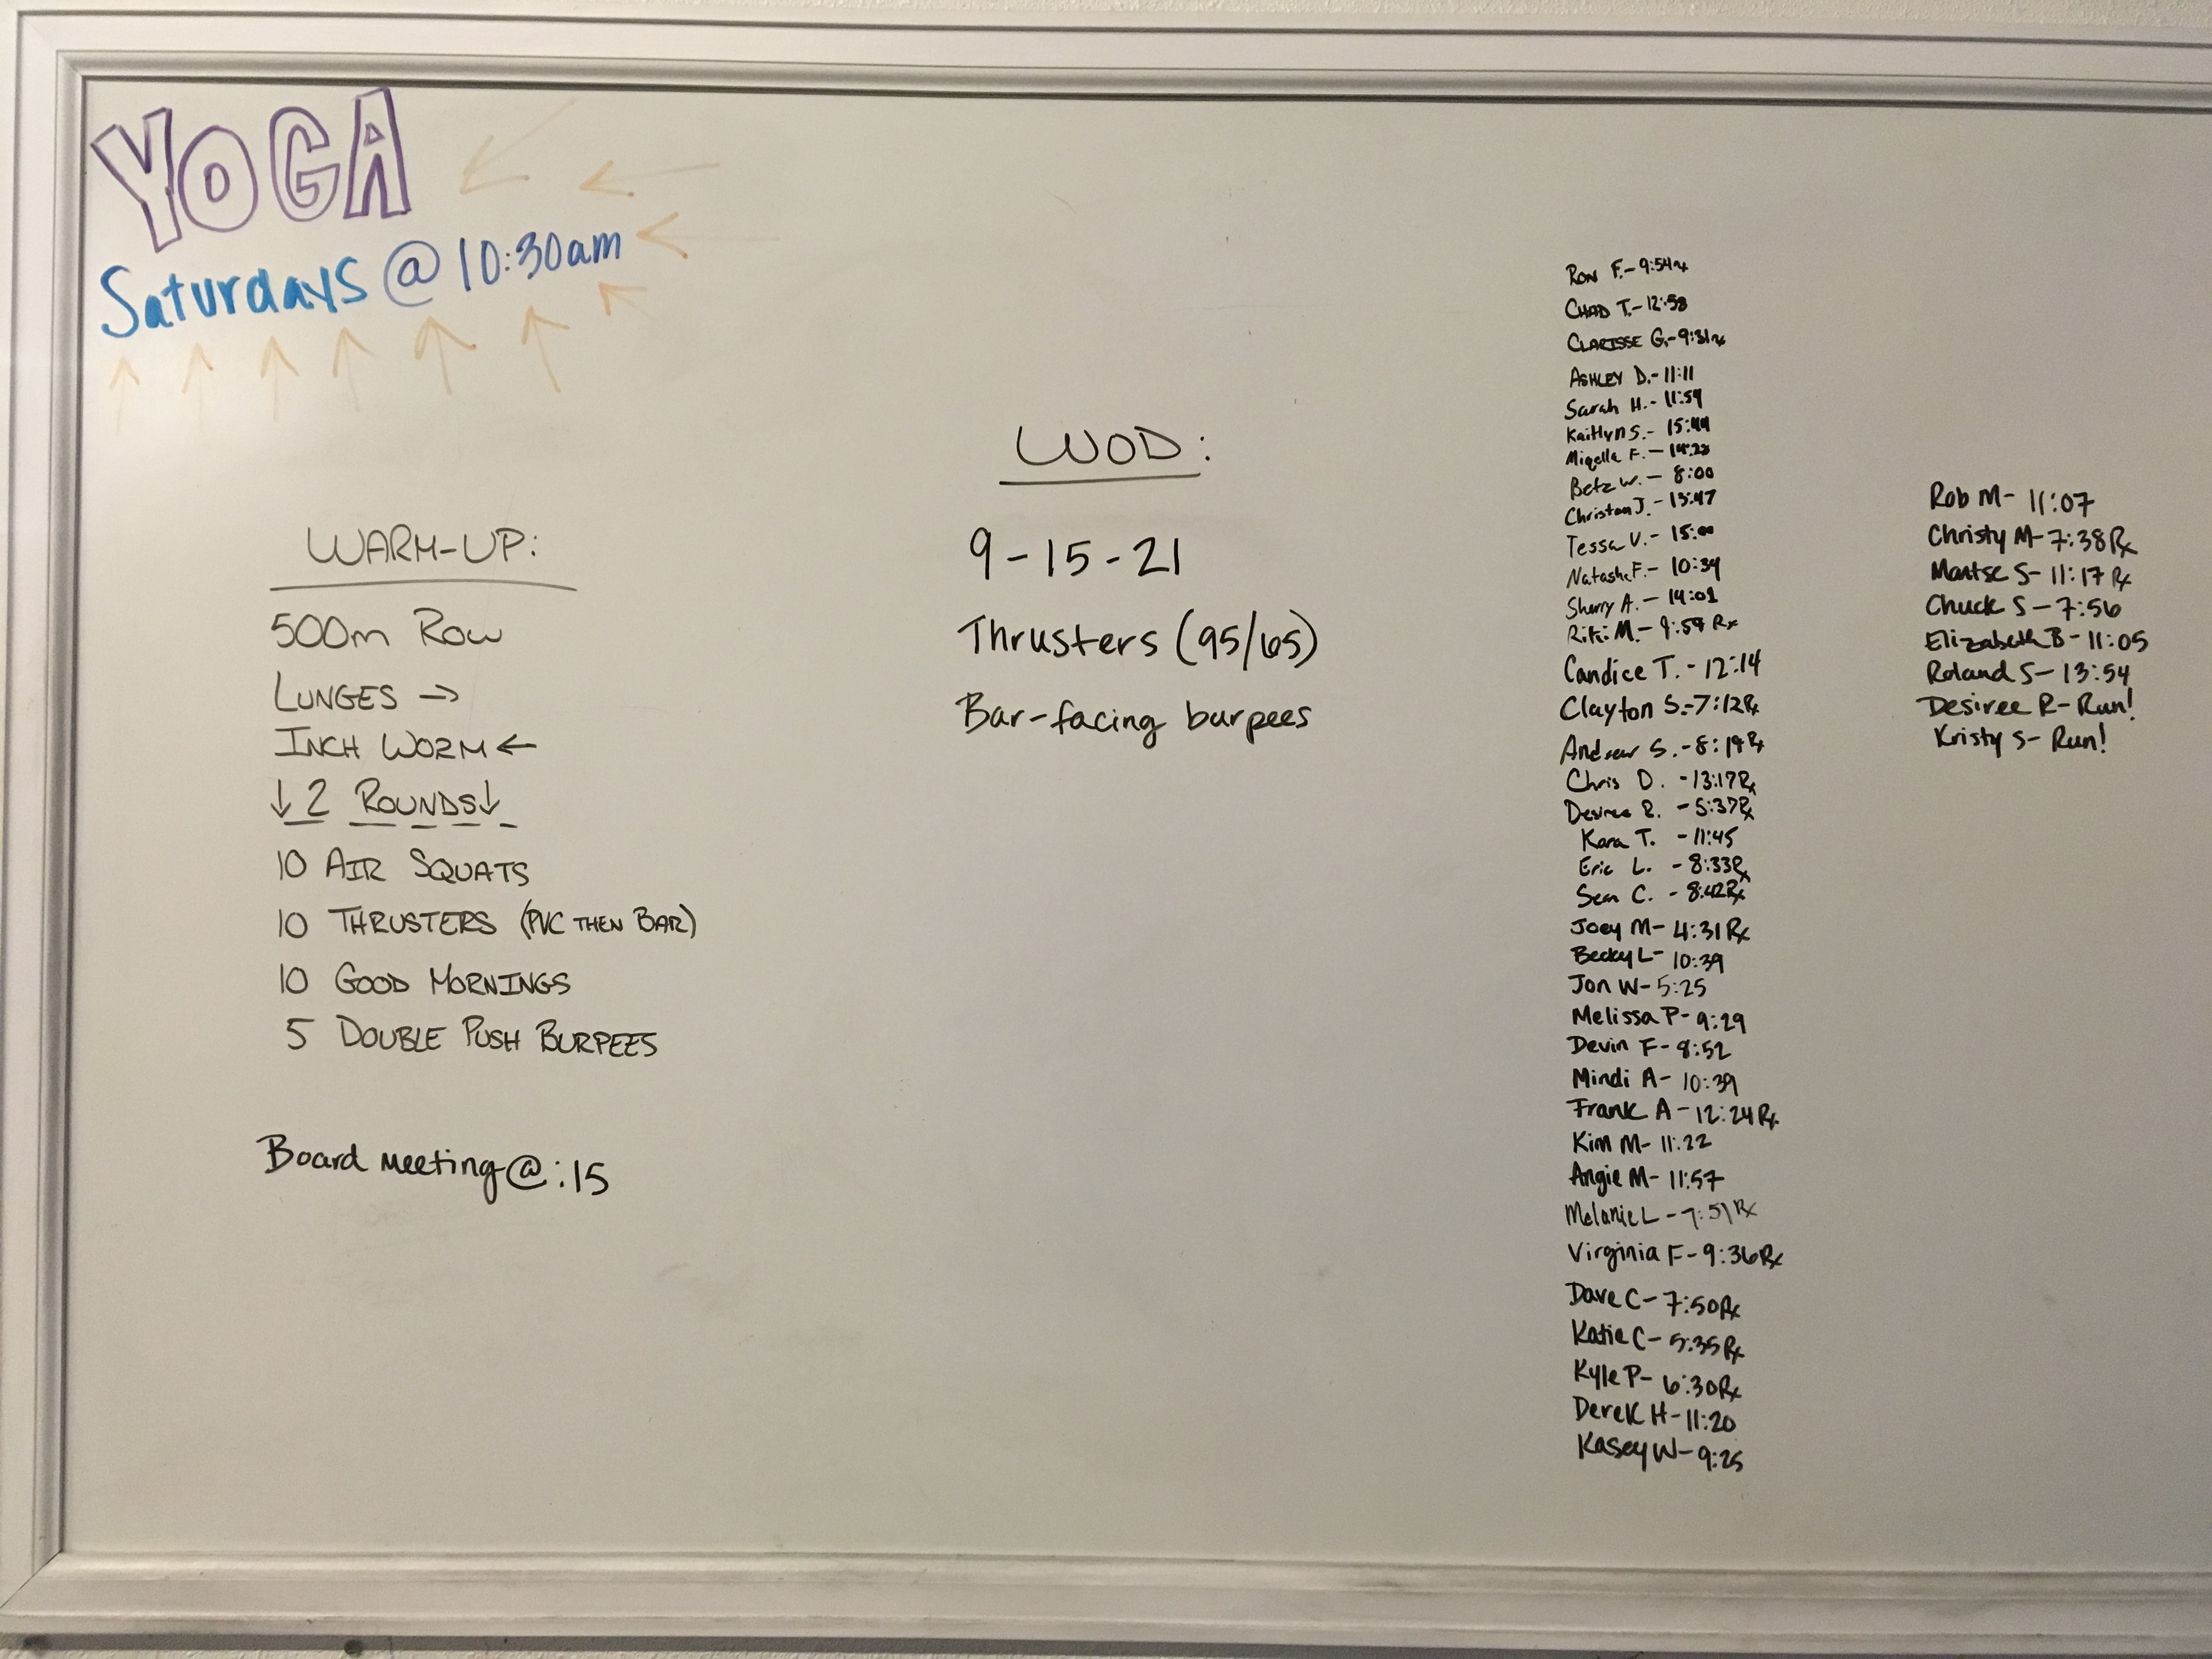 YOGA
Saturdays @ 10:30am
WARM-UP:
500m Row
LUNGES →
INCH WORM ←
↓ 2 ROUNDS ↓
10 AIR SQUATS
10 THRUSTERS (PVC THEN BAR)
10 GOOD MORNINGS
5 DOUBLE PUSH BURPEES
Board meeting @ :15
WOD:
9-15-21
Thrusters (95/65)
Bar-facing burpees
RON F.- 9:54rx
CHAD T.- 12:58
CLARISSE G.- 9:31rx
ASHLEY D.- 11:11
Sarah H.- 11:59
Kaitlyn S.- 15:44
Miqella F.-
Betz W.- 8:00
Christan J.- 13:47
Tessa V.- 15:00
Natasha F.- 10:34
Sherry A.- 14:01
Riki M.- 9:59 Rx
Candice T.- 12:14
Clayton S.- 7:12Rx
Andrew S.- 8:19Rx
Chris D. -13:17Rx
Desiree R. -5:37Rx
Kara T. -11:45
Eric L. -8:33Rx
Sean C. -8:42Rx
Joey M- 4:31Rx
Becky L- 10:39
Jon W- 5:25
Melissa P- 9:29
Devin F- 8:52
Mindi A- 10:39
Frank A- 12:24Rx
Kim M- 11:22
Angie M- 11:57
Melanie L- 7:51Rx
Virginia F- 9:36Rx
Dave C- 7:50Rx
Katie C- 5:35Rx
Kyle P- 6:30Rx
Derek H- 11:20
Kasey W- 9:25
Rob M- 11:07
Christy M- 7:38Rx
Montse S- 11:17Rx
Chuck S- 7:56
Elizabeth B- 11:05
Roland S- 13:54
Desiree R- Run!
Kristy S- Run!